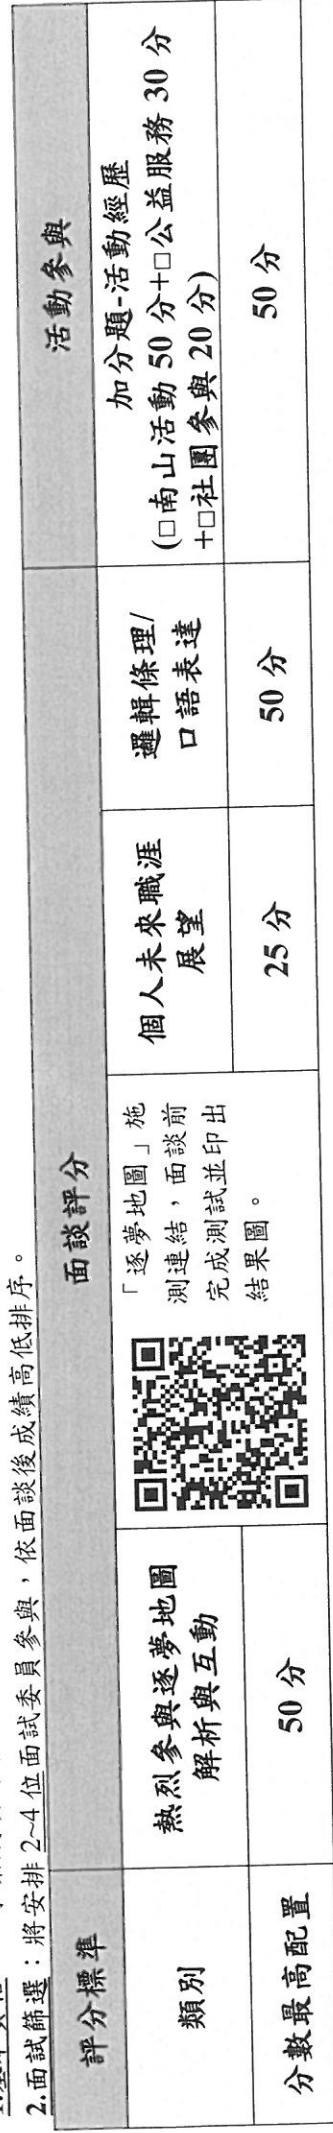 2.面試篩選：將安排 2~4 位面試委員參與，依面談後成績高低排序。
評分標準
面談評分
活動參與
類別
熱烈參與逐夢地圖
解析與互動
「逐夢地圖」施
測連結，面談前
完成測試並印出
結果圖。
個人未來職涯
展望
邏輯條理/
口語表達
加分題-活動經歷
(□南山活動 50 分+□公益服務 30 分
+□社團參與 20 分)
分數最高配置
50 分
25 分
50 分
50 分